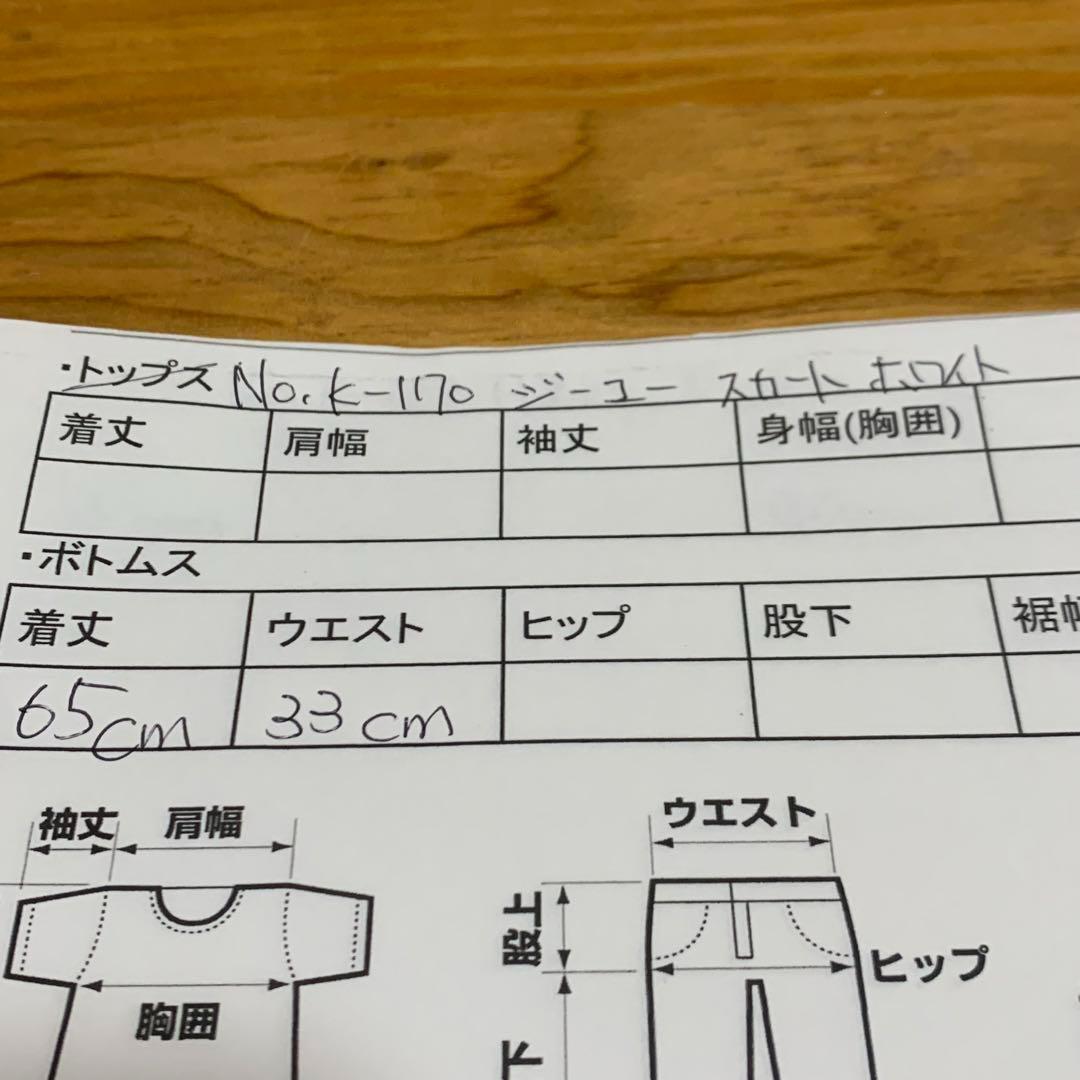 ・トップス No.K-1170 ジーユー スカート ホワイト
着丈 肩幅 袖丈 身幅(胸囲)
・ボトムス
着丈 ウエスト ヒップ 股下 裾
65cm 33cm
袖丈 肩幅 ウエスト
股上
ヒップ
胸囲
下